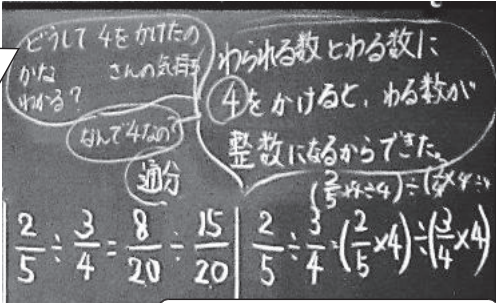 どうして 4をかけたの
かな　さんの気持ち
わかる?
なんで4なの?
わられる数とわる数に
4をかけると、わる数が
整数になるからできた。
通分
2/5 ÷ 3/4 = 8/20 ÷ 15/20
2/5 ÷ 3/4 = (2/5 ×4) ÷ (3/4 ×4)